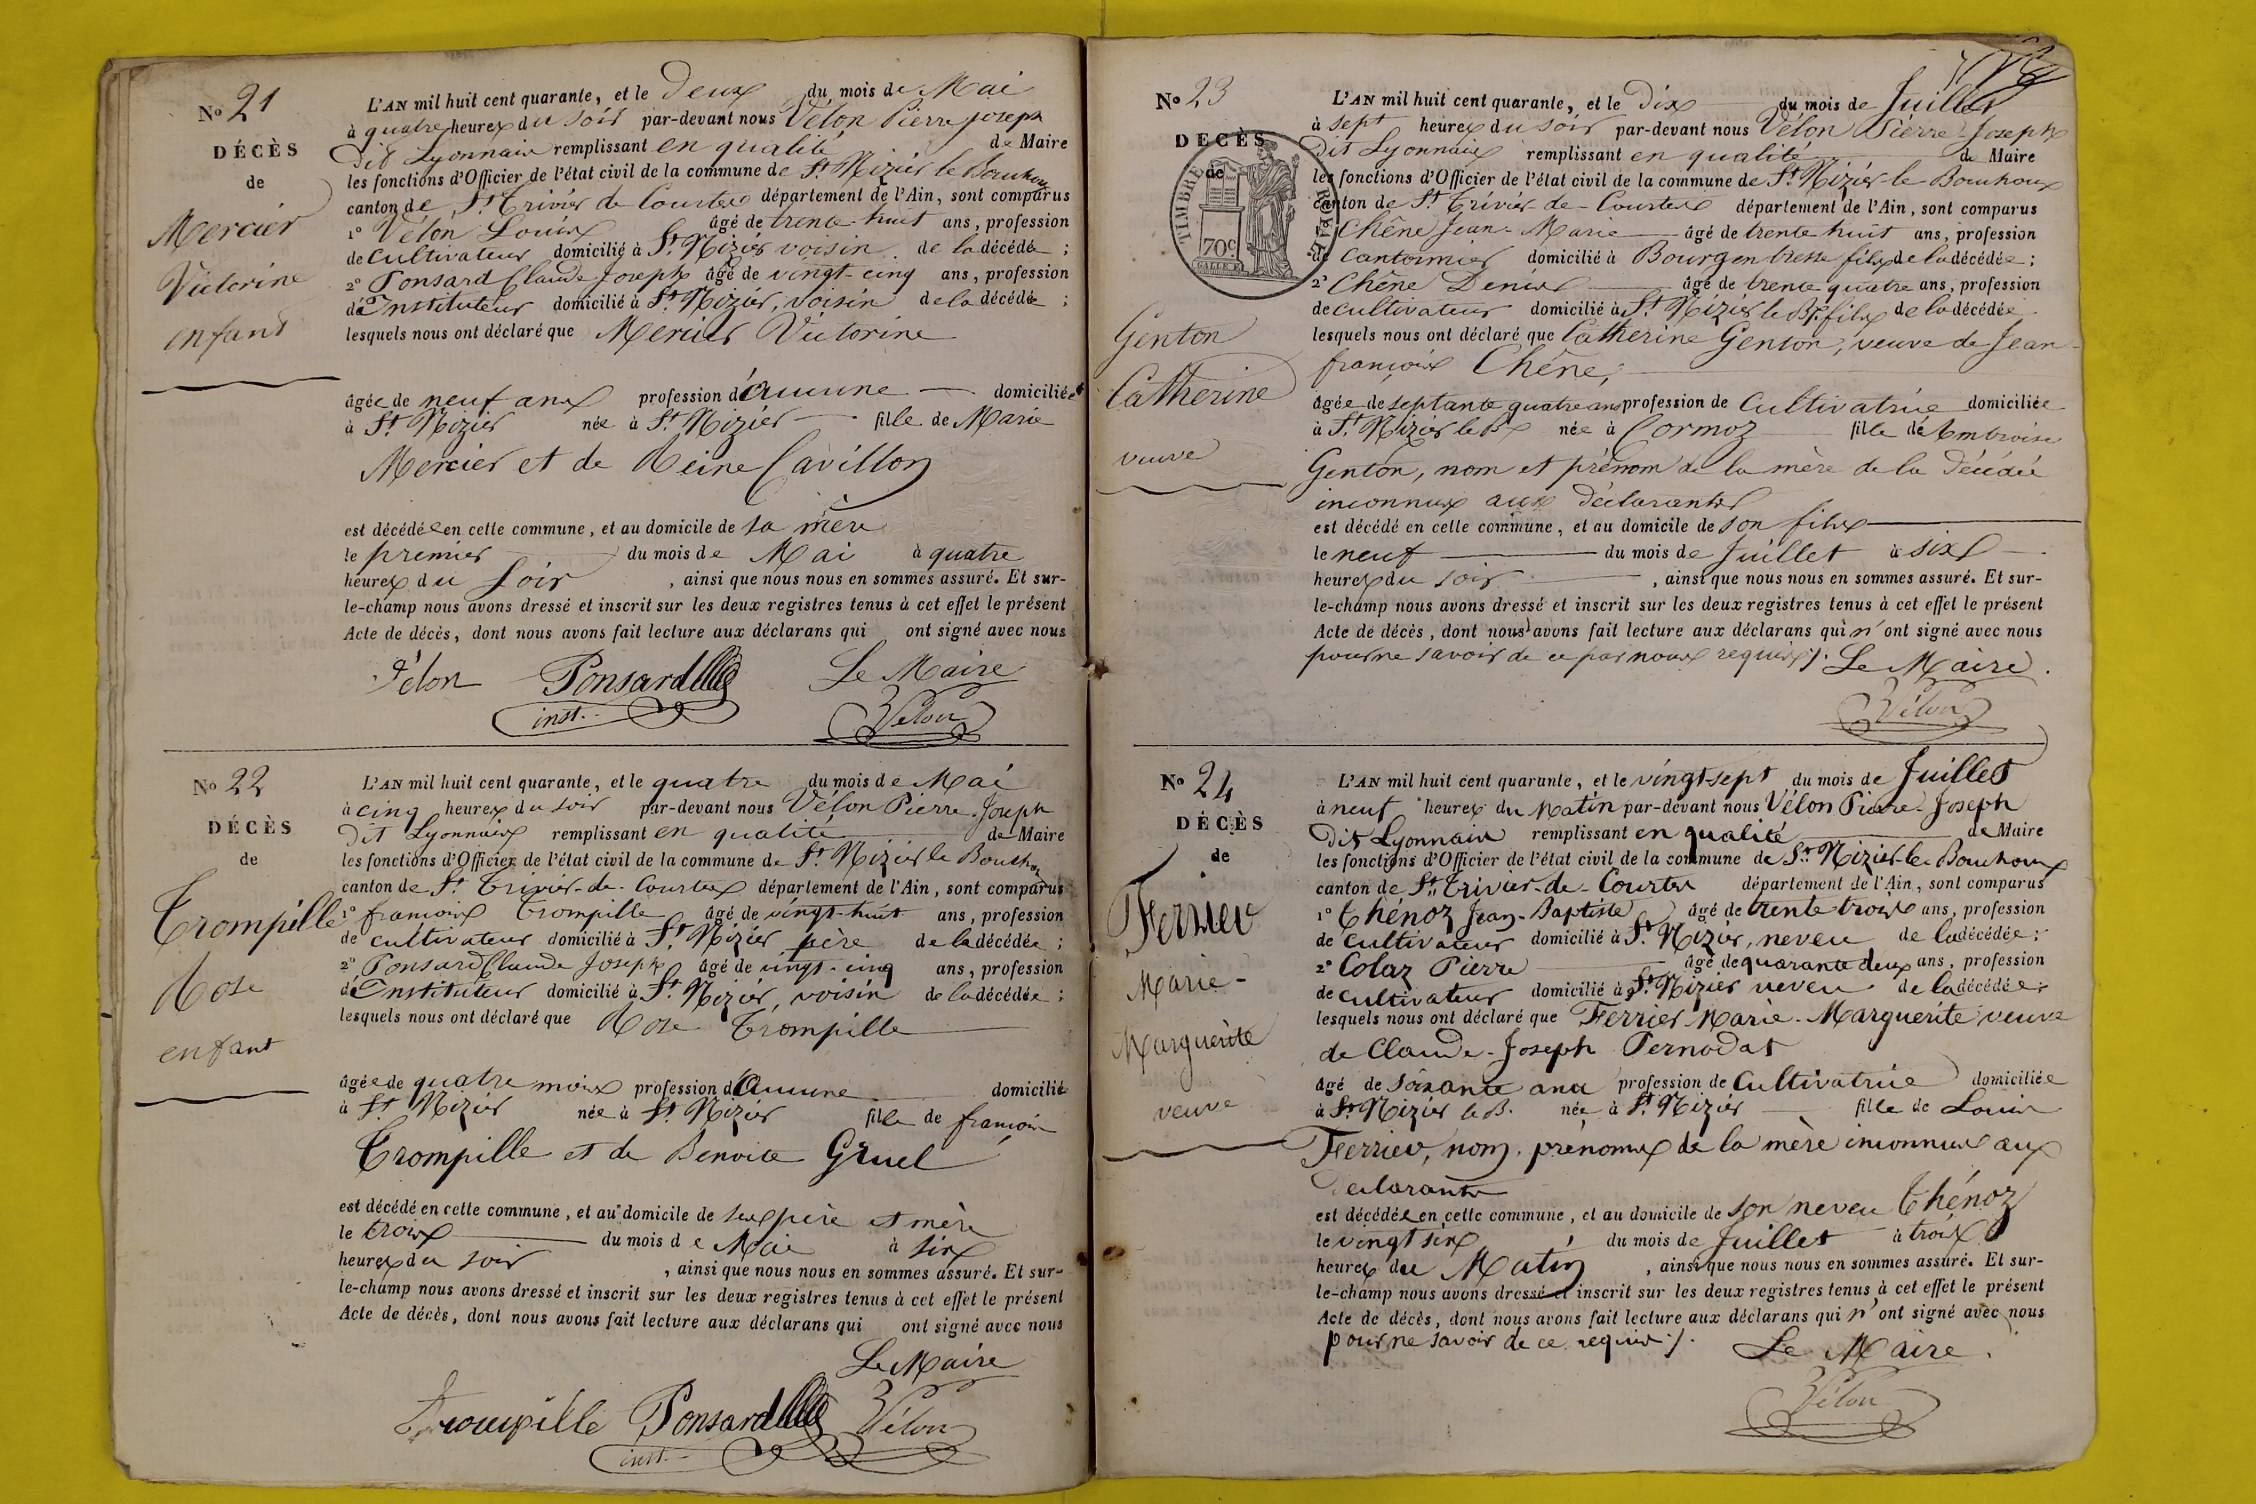 No 21
DÉCÈS
de
Mercier
Victorine
enfant
L'AN mil huit cent quarante, et le deux du mois de Mai
à quatre heures du soir par-devant nous Vélon Pierre Joseph
dit Lyonnais remplissant en qualité de Maire
les fonctions d'Officier de l'état civil de la commune de St Nizier le Bouchoux
canton de St Trivier de Courtes département de l'Ain, sont comparus
1o Vélon Louis âgé de trente-huit ans, profession
de cultivateur domicilié à St Nizier voisin de la décédée ;
2o Ponsard Claude Joseph âgé de vingt-cinq ans, profession
d'Instituteur domicilié à St Nizier, voisin de la décédée ;
lesquels nous ont déclaré que Mercier Victorine
âgée de neuf ans profession d'aucune domiciliée
à St Nizier née à St Nizier fille de Marie
Mercier et de Reine Cavillon
est décédée en cette commune, et au domicile de sa mère
le premier du mois de Mai à quatre
heures du soir , ainsi que nous nous en sommes assuré. Et sur-
le-champ nous avons dressé et inscrit sur les deux registres tenus à cet effet le présent
Acte de décès, dont nous avons fait lecture aux déclarans qui ont signé avec nous
Vélon Ponsard Le Maire
inst. Vélon
No 22
DÉCÈS
de
Trompille
Rose
enfant
L'AN mil huit cent quarante, et le quatre du mois de Mai
à cinq heures du soir par-devant nous Vélon Pierre-Joseph
dit Lyonnais remplissant en qualité de Maire
les fonctions d'Officier de l'état civil de la commune de St Nizier le Bouchoux
canton de St Trivier-de-Courtes département de l'Ain, sont comparus
1o françois Trompille âgé de vingt-huit ans, profession
de cultivateur domicilié à St Nizier père de la décédée ;
2o Ponsard Claude Joseph âgé de vingt-cinq ans, profession
d'Instituteur domicilié à St Nizier, voisin de la décédée ;
lesquels nous ont déclaré que Rose Trompille
âgée de quatre mois profession d'aucune domicilié
à St Nizier née à St Nizier fille de françois
Trompille et de Benoite Gruel
est décédé en cette commune, et au domicile de ses père et mère
le trois du mois de Mai à six
heures du soir , ainsi que nous nous en sommes assuré. Et sur-
le-champ nous avons dressé et inscrit sur les deux registres tenus à cet effet le présent
Acte de décès, dont nous avons fait lecture aux déclarans qui ont signé avec nous
Le Maire
Trompille Ponsard Vélon
inst.
No 23
DÉCÈS
de
TIMBRE ROYAL
70c
Genton
Catherine
veuve
L'AN mil huit cent quarante, et le dix du mois de Juillet
à sept heures du soir par-devant nous Vélon Pierre-Joseph
dit Lyonnais remplissant en qualité de Maire
les fonctions d'Officier de l'état civil de la commune de St Nizier-le-Bouchoux
canton de St Trivier-de-Courtes département de l'Ain, sont comparus
1o Chêne Jean-Marie âgé de trente huit ans, profession
de cantonnier domicilié à Bourg en bresse fils de la décédée ;
2o Chêne Denis âgé de trente quatre ans, profession
de cultivateur domicilié à St Nizier le B. fils de la décédée
lesquels nous ont déclaré que Catherine Genton, veuve de Jean-
françois Chêne,
âgée de septante quatre ans profession de cultivatrice domiciliée
à St Nizier le Bx née à Cormoz fille d'Ambroise
Genton, nom et prénom de la mère de la décédée
inconnus aux déclarants
est décédé en cette commune, et au domicile de son fils
le neuf du mois de Juillet à six
heures du soir , ainsi que nous nous en sommes assuré. Et sur-
le-champ nous avons dressé et inscrit sur les deux registres tenus à cet effet le présent
Acte de décès, dont nous avons fait lecture aux déclarans qui n'ont signé avec nous
pour ne savoir de ce par nous requis ./. Le Maire.
Vélon
No 24
DÉCÈS
de
Ferrier
Marie-
Marguerite
veuve
L'AN mil huit cent quarante, et le vingt-sept du mois de Juillet
à neuf heures du Matin par-devant nous Vélon Pierre-Joseph
dit Lyonnais remplissant en qualité de Maire
les fonctions d'Officier de l'état civil de la commune de St Nizier-le-Bouchoux
canton de St Trivier-de-Courtes département de l'Ain, sont comparus
1o Thénoz Jean-Baptiste âgé de trente trois ans, profession
de cultivateur domicilié à St Nizier, neveu de la décédée ;
2o Colaz Pierre âgé de quarante deux ans, profession
de cultivateur domicilié à St Nizier neveu de la décédée ;
lesquels nous ont déclaré que Ferrier Marie-Marguerite veuve
de Claude-Joseph Pernodat
âgé de soixante ans profession de cultivatrice domiciliée
à St Nizier le B. née à St Nizier fille de Louis
Ferrier, nom, prénoms de la mère inconnus aux
déclarants
est décédée en cette commune, et au domicile de son neveu Thénoz
le vingt six du mois de Juillet à trois
heures du Matin , ainsi que nous nous en sommes assuré. Et sur-
le-champ nous avons dressé et inscrit sur les deux registres tenus à cet effet le présent
Acte de décès, dont nous avons fait lecture aux déclarans qui n'ont signé avec nous
pour ne savoir de ce requis ./. Le Maire.
Vélon